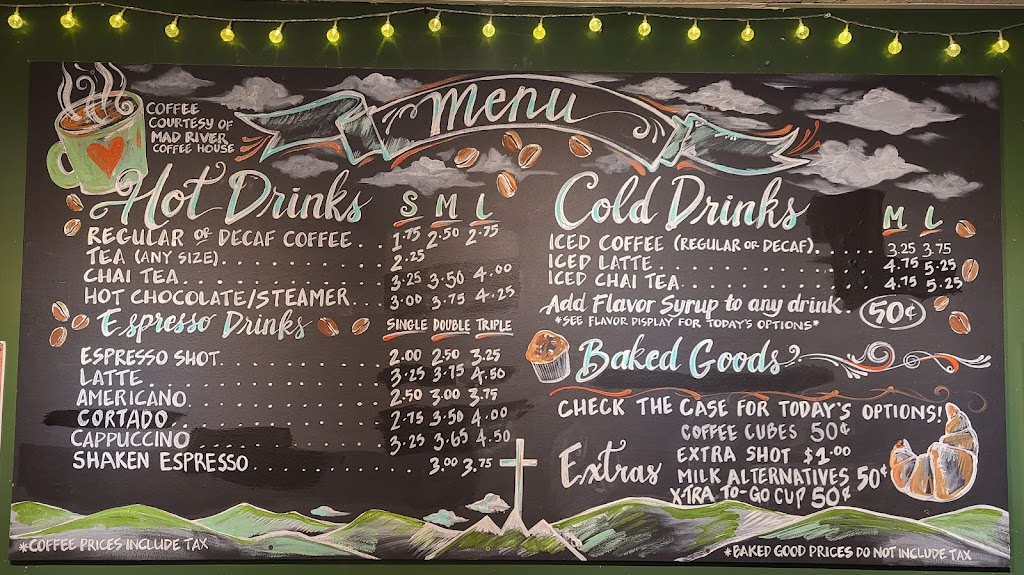 COFFEE
COURTESY OF
MAD RIVER
COFFEE HOUSE
Menu
Hot Drinks S M L
REGULAR OR DECAF COFFEE... 1.75 2.50 2.75
TEA (ANY SIZE)............ 2.25
CHAI TEA............ 3.25 3.50 4.00
HOT CHOCOLATE/STEAMER... 3.00 3.75 4.25
Espresso Drinks SINGLE DOUBLE TRIPLE
ESPRESSO SHOT............ 2.00 2.50 3.25
LATTE............ 3.25 3.75 4.50
AMERICANO............ 2.50 3.00 3.75
CORTADO............ 2.75 3.50 4.00
CAPPUCCINO............ 3.25 3.65 4.50
SHAKEN ESPRESSO............ 3.00 3.75
*COFFEE PRICES INCLUDE TAX
Cold Drinks M L
ICED COFFEE (REGULAR OR DECAF)..... 3.25 3.75
ICED LATTE............ 4.75 5.25
ICED CHAI TEA............ 4.75 5.25
Add Flavor Syrup to any drink. 50¢
*SEE FLAVOR DISPLAY FOR TODAY'S OPTIONS*
Baked Goods
CHECK THE CASE FOR TODAY'S OPTIONS!
Extras
COFFEE CUBES 50¢
EXTRA SHOT $1.00
MILK ALTERNATIVES 50¢
X-TRA TO-GO CUP 50¢
*BAKED GOOD PRICES DO NOT INCLUDE TAX